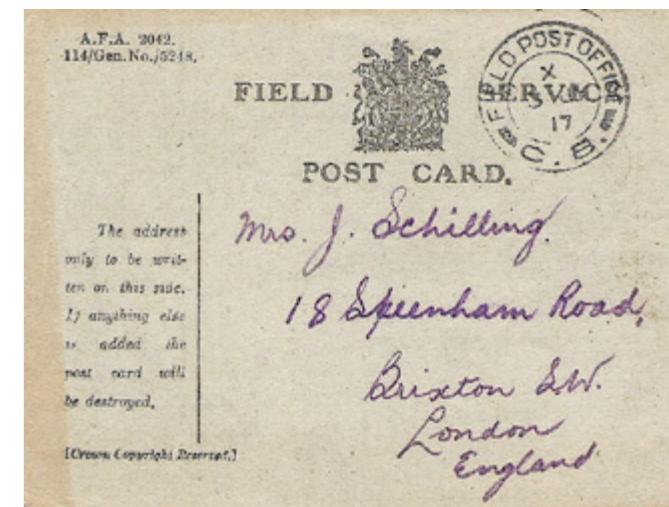 A.F.A. 2042.
114/Gen.No./5248.
FIELD SERVICE
POST CARD.
FIELD POST OFFICE
X
17
C. 8.
The address
only to be writ-
ten on this side.
If anything else
is added the
post card will
be destroyed.
[Crown Copyright Reserved.]
Mrs. J. Schilling.
18 Speenham Road,
Brixton S.W.
London
England